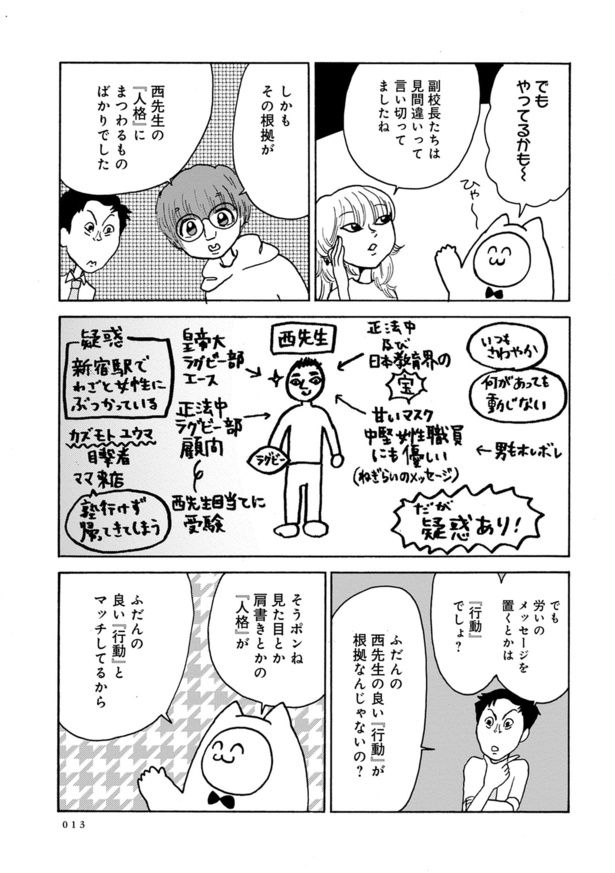 でも
やってるかも〜
ひゃ〜
副校長たちは
見間違いって
言い切って
ましたね
しかも
その根拠が
西先生の
『人格』に
まつわるもの
ばかりでした
西先生
いつも
さわやか
何があっても
動じない
正法中
及び
日本教育界の
宝
甘いマスク
中堅女性職員
にも優しい
(ねぎらいのメッセージ)
←男もホレボレ
だが
疑惑あり!
ラグビー
皇帝大
ラグビー部
エース
正法中
ラグビー部
顧問
西先生目当てに
受験
疑惑
新宿駅で
わざと女性に
ぶつかっている
カズモトユウマ
目撃者
ママ来店
塾行けず
帰ってきてしまう
でも
労いの
メッセージを
置くとかは
『行動』
でしょ?
ふだんの
西先生の良い『行動』が
根拠なんじゃないの?
そうポンね
見た目とか
肩書きとかの
『人格』が
ふだんの
良い『行動』と
マッチしてるから
013